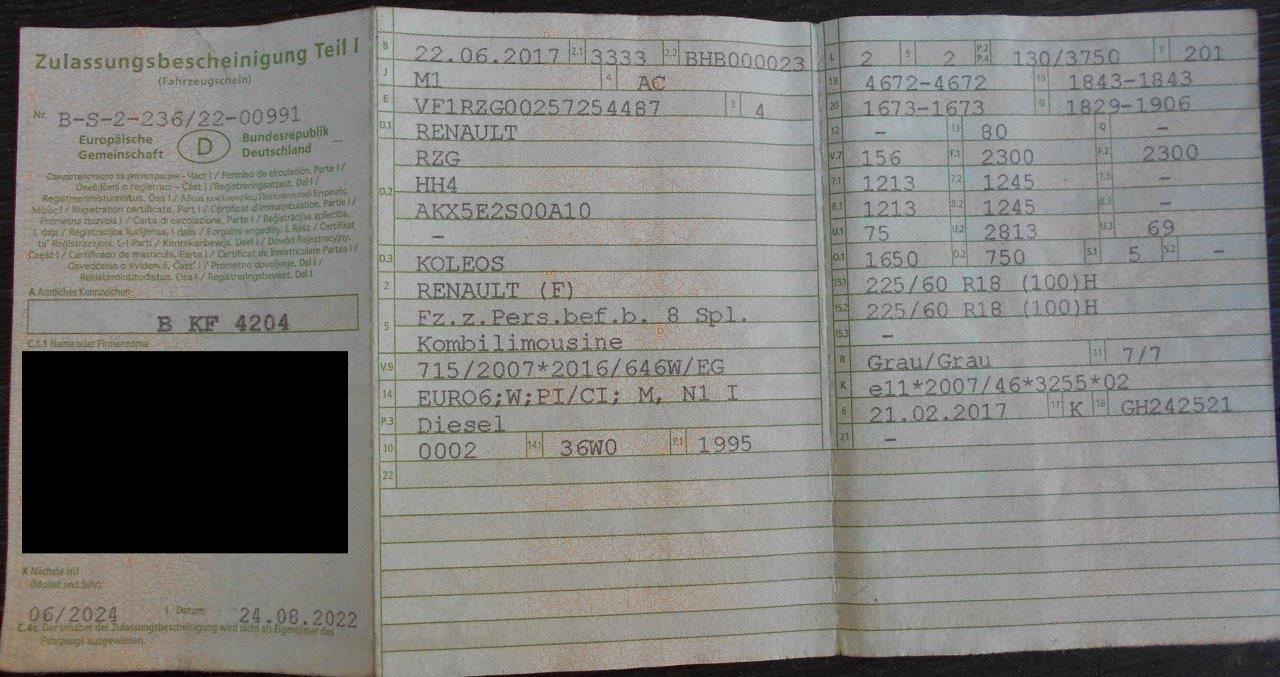 Zulassungsbescheinigung Teil I
(Fahrzeugschein)
Nr. B-S-2-236/22-00991
Europäische Gemeinschaft D Bundesrepublik Deutschland
Свидетелството за регистрация - Част I / Permiso de circulación. Parte I /
Osvědčení o registraci - Část I / Registreringsattest. Del I /
Registreerimistunnistus. Osa I / Άδεια κυκλοφορίας/Πιστοποιητικό Εγγραφής.
Μέρος I / Registration certificate. Part I / Certificat d'immatriculation. Partie I /
Prometna dozvola I / Carta di circolazione. Parte I / Reģistrācijas apliecība.
I. daļa / Registracijos liudijimas. I dalis / Forgalmi engedély. I. Rész / Ċertifikat
ta' Reġistrazzjoni. L-I Parti / Kentekenbewijs. Deel I / Dowód Rejestracyjny.
Część I / Certificado de matrícula. Parte I / Certificat de înmatriculare Partea I /
Osvedčenie o evidencii. Časť I / Prometno dovoljenje. Del I /
Rekisteröintitodistus. Osa I / Registreringsbeviset. Del I
A Amtliches Kennzeichen
B KF 4204
C.1.1 Name oder Firmenname
X Nächste HU
(Monat und Jahr):
06/2024 I Datum: 24.08.2022
C.4c Der Inhaber der Zulassungsbescheinigung wird nicht als Eigentümer des
Fahrzeugs ausgewiesen.
B 22.06.2017 2.1 3333 2.2 BHB000023
J M1 4 AC
E VF1RZG00257254487 3 4
D.1 RENAULT
RZG
D.2 HH4
AKX5E2S00A10
–
D.3 KOLEOS
2 RENAULT (F)
5 Fz.z.Pers.bef.b. 8 Spl.
Kombilimousine
V.9 715/2007*2016/646W/EG
14 EURO6;W;PI/CI; M, N1 I
P.3 Diesel
10 0002 14.1 36W0 P.1 1995
22
L 2 9 2 P.2 P.4 130/3750 T 201
18 4672-4672 19 1843-1843
20 1673-1673 G 1829-1906
12 – 13 80 Q –
V.7 156 F.1 2300 F.2 2300
7.1 1213 7.2 1245 7.3 –
8.1 1213 8.2 1245 8.3 –
U.1 75 U.2 2813 U.3 69
O.1 1650 O.2 750 S.1 5 S.2 –
15.1 225/60 R18 (100)H
15.2 225/60 R18 (100)H
15.3 –
R Grau/Grau 11 7/7
K e11*2007/46*3255*02
6 21.02.2017 17 K 16 GH242521
21 –